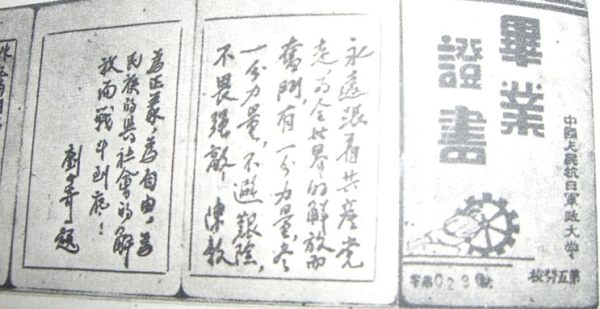 畢業
證書
中國人民抗日軍政大學
第五分校
字第0230號
永遠跟着共產党
走为全世界的解放而
奮鬥，有一分力量，尽
一分力量，不避艱險，
不畏强敵 陳毅
為正義，為自由，為
民族的與社會的解
放而戰斗到底！
劉少奇題